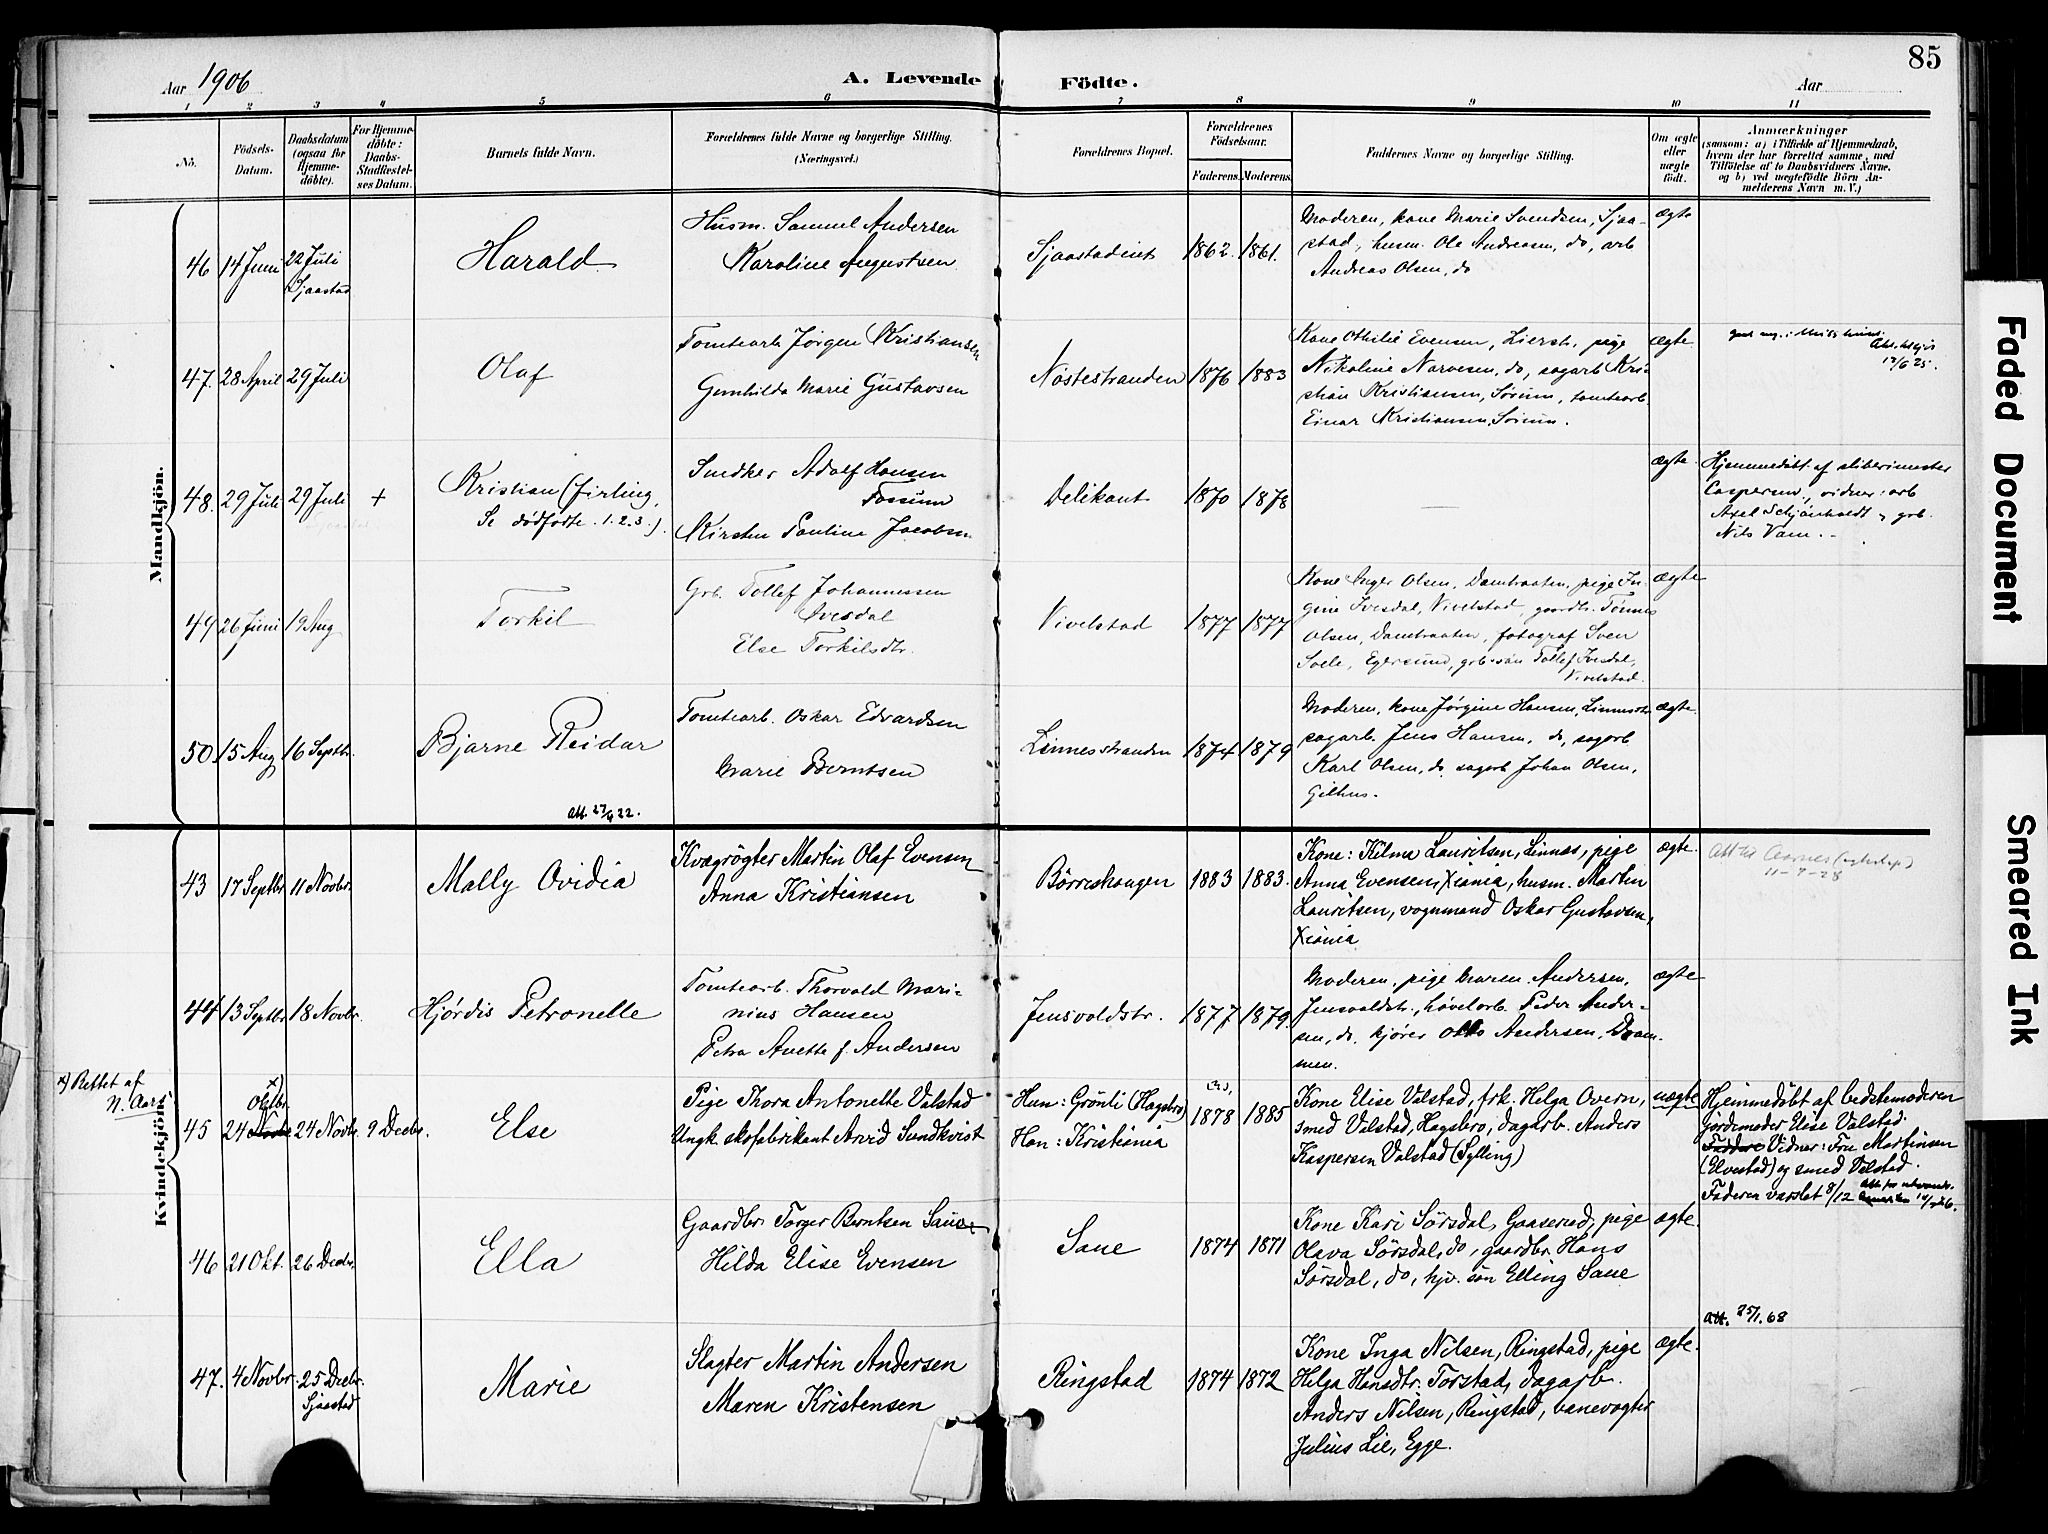 85
Aar 1906
A. Levende Födte.
Aar
1 2 3 4 5 6 7 8 9 10 11
No.
Födsels-Datum.
Daabsdatum (ogsaa for Hjemme-döbte).
For Hjemme-döbte: Daabs-Stadfæstel-ses Datum.
Barnets fulde Navn.
Forældrenes fulde Navne og borgerlige Stilling. (Næringsvei.)
Forældrenes Bopæl.
Forældrenes Födselsaar.
Faderens. Moderens.
Faddernes Navne og borgerlige Stilling.
Om ægte eller uægte födt.
Anmærkninger
(saasom: a) i Tilfælde af Hjemmedaab,
hvem der har forrettet samme, med
Tilföielse af to Daabsvidners Navne.
og b) ved uægtefödte Börn An-
melderens Navn m. V.)
Mandkjön.
46 14 Juni 22 Juli Sjaastad
Harald
Husm. Samuel Andersen
Karoline Augustsen
Sjaastadeiet 1862. 1861.
Moderen, kone Marie Svendsen, Sjaa-
stad, husm. Ole Andreasen, do, arb
Andreas Olsen, do
ægte
47. 28 April 29 Juli
Olaf
Tomtearb Jørgen Kristiansen
Gunhilda Marie Gustavsen
Nøstestranden 1876 1883
Kone Othilie Evensen, Lierstr., pige
Nikoline Narvesen, do, sagarb Kri-
stian Kristiansen, Sørum, tomtearb
Einar Kristiansen, Sørum.
ægte
12/6 25.
48. 29 Juli 29 Juli +
Kristian (firling,
Se dødfødte. 1.2.3.)
Snedker Adolf Hansen
Fossum
Kirsten Pauline Jacobsen
Delikant 1870 1878
ægte.
Hjemmedöbt af
Caspersen, vidner: arb
Axel Schjønhaldt, grb.
Nils Vam.
49 26 Juni 19 Aug
Torkil
Grb. Tollef Johannessen
Ivesdal
Else Torkilsdtr.
Vivelstad 1877 1877
Kone Inger Olsen, Dambraaten, pige In-
gine Ivesdal, Vivelstad, gaardbr. Tönnes
Olsen, Dambraaten, fotograf Sven
Svele, Egersund, grb.sön Tollef Ivesdal,
Vivelstad.
ægte
50. 15 Aug 16 Septbr.
Bjarne Reidar
Att. 27/9 22.
Tomtearb. Oskar Edvardsen
Marie Berntsen
Linnesstranden 1874 1879
Moderen, kone Jørgine Hansen, Linnesstr
sagarb. Jens Hansen, do, sagarb
Karl Olsen, do sagarb Johan Olsen,
Gilhus.
ægte.
Kvindekjön.
43 17 Septbr 11 Novbr.
Mally Ovidia
Kvægrögter Martin Olaf Evensen
Anna Kristiansen
Börreshaugen 1883 1883.
Kone: Hilma Lauritsen, Linnæs, pige
Anna Evensen, Xiania, husm. Martin
Lauritsen, vognmand Oskar Gustavsen,
Xiania
ægte.
Att til Aarnes
11-7-28
44 13 Septbr. 18 Novbr.
Hjørdis Petronelle
Tomtearb. Thorvald Mari-
nius Hansen
Petra Anette f. Andersen
Jensvoldstr. 1877 1879.
Moderen, pige Maren Andersen,
Jensvoldstr., høvlarb. Peder Ander-
sen, do, kjører Otto Andersen, Dram-
men.
ægte
x) Rettet af
N. Aars.
45 24 Novbr x) Oktbr. 24 Novbr. 9 Decbr.
Else
Pige Thora Antonette Valstad
Ungk. skofabrikant Arvid Sundkvist
Hun: Grönli (Hagsbro)
Han: Kristiania
1878 1885
Kone Elise Valstad, frk. Helga Overn,
smed Valstad, Hagsbro, dagarb. Anders
Kaspersen Valstad (Sylling)
uægte
Hjemmedöbt af bedstemoderen
jordemoder Elise Valstad
Faddere Vidner: Fru Martinsen
(Elvestad) og smed Valstad.
Faderen varslet 8/12
46 21 Okt. 26 Decbr.
Ella
Gaardbr. Torger Berntsen Saue
Hilda Elise Evensen
Saue 1874 1871
Kone Kari Sörsdal, Gaaserud, pige
Olava Sörsdal, do, gaardbr. Hans
Sörsdal, do, hjv. sön Elling Saue
ægte.
Att. 25/1.68
47. 4 Novbr. 25 Decbr. Sjaastad
Marie
Slagter Martin Andersen
Maren Kristensen
Ringstad 1874 1872
Kone Inga Nilsen, Ringstad, pige
Helga Hansdtr. Torstad, dagarb.
Anders Nilsen, Ringstad, banevogter
Julius Lie, Egge.
ægte.
Faded Document
Smeared Ink